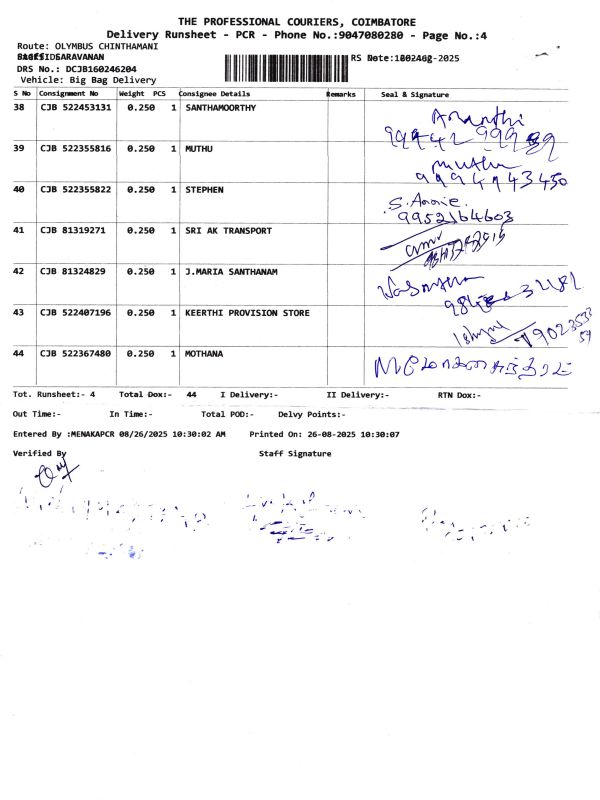 THE PROFESSIONAL COURIERS, COIMBATORE
Delivery Runsheet - PCR - Phone No.:9047080280 - Page No.:4
Route: OLYMBUS CHINTHAMANI
SARAVANAN
DRS No.: DCJB160246204
Vehicle: Big Bag Delivery
S No Consignment No Weight PCS Consignee Details Remarks Seal & Signature
38 CJB 522453131 0.250 1 SANTHAMOORTHY Ananthi
39 CJB 522355816 0.250 1 MUTHU Muthu
9994943450
40 CJB 522355822 0.250 1 STEPHEN S. Annie.
9952164603
41 CJB 81319271 0.250 1 SRI AK TRANSPORT
42 CJB 81324829 0.250 1 J.MARIA SANTHANAM
43 CJB 522407196 0.250 1 KEERTHI PROVISION STORE
44 CJB 522367480 0.250 1 MOTHANA
Tot. Runsheet:- 4 Total Dox:- 44 I Delivery:- II Delivery:- RTN Dox:-
Out Time:- In Time:- Total POD:- Delvy Points:-
Entered By :MENAKAPCR 08/26/2025 10:30:02 AM Printed On: 26-08-2025 10:30:07
Verified By Staff Signature